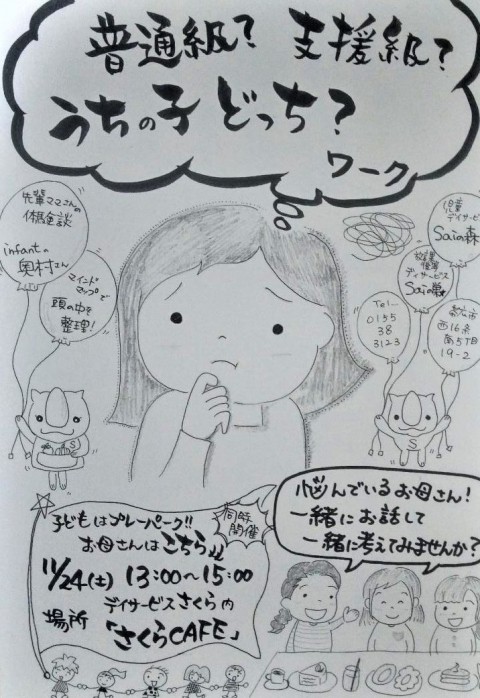 普通級? 支援級?
うちの子 どっち?
ワーク
先輩ママさんの
体験談
infantの
奥村さん
マインド
マップで
頭の中を
整理!
児童
デイサービス
Saiの森
放課後等
デイサービス
Saiの巣
Tel
0155
38
3123
帯広市
西16条
南5丁目
19-2
S
S
子どもはプレーパーク!!
お母さんはこちら↓↓
同時
開催
11/24(土) 13:00〜15:00
デイサービスさくら内
場所 「さくらCAFE」
悩んでいるお母さん!
一緒にお話して
一緒に考えてみませんか?